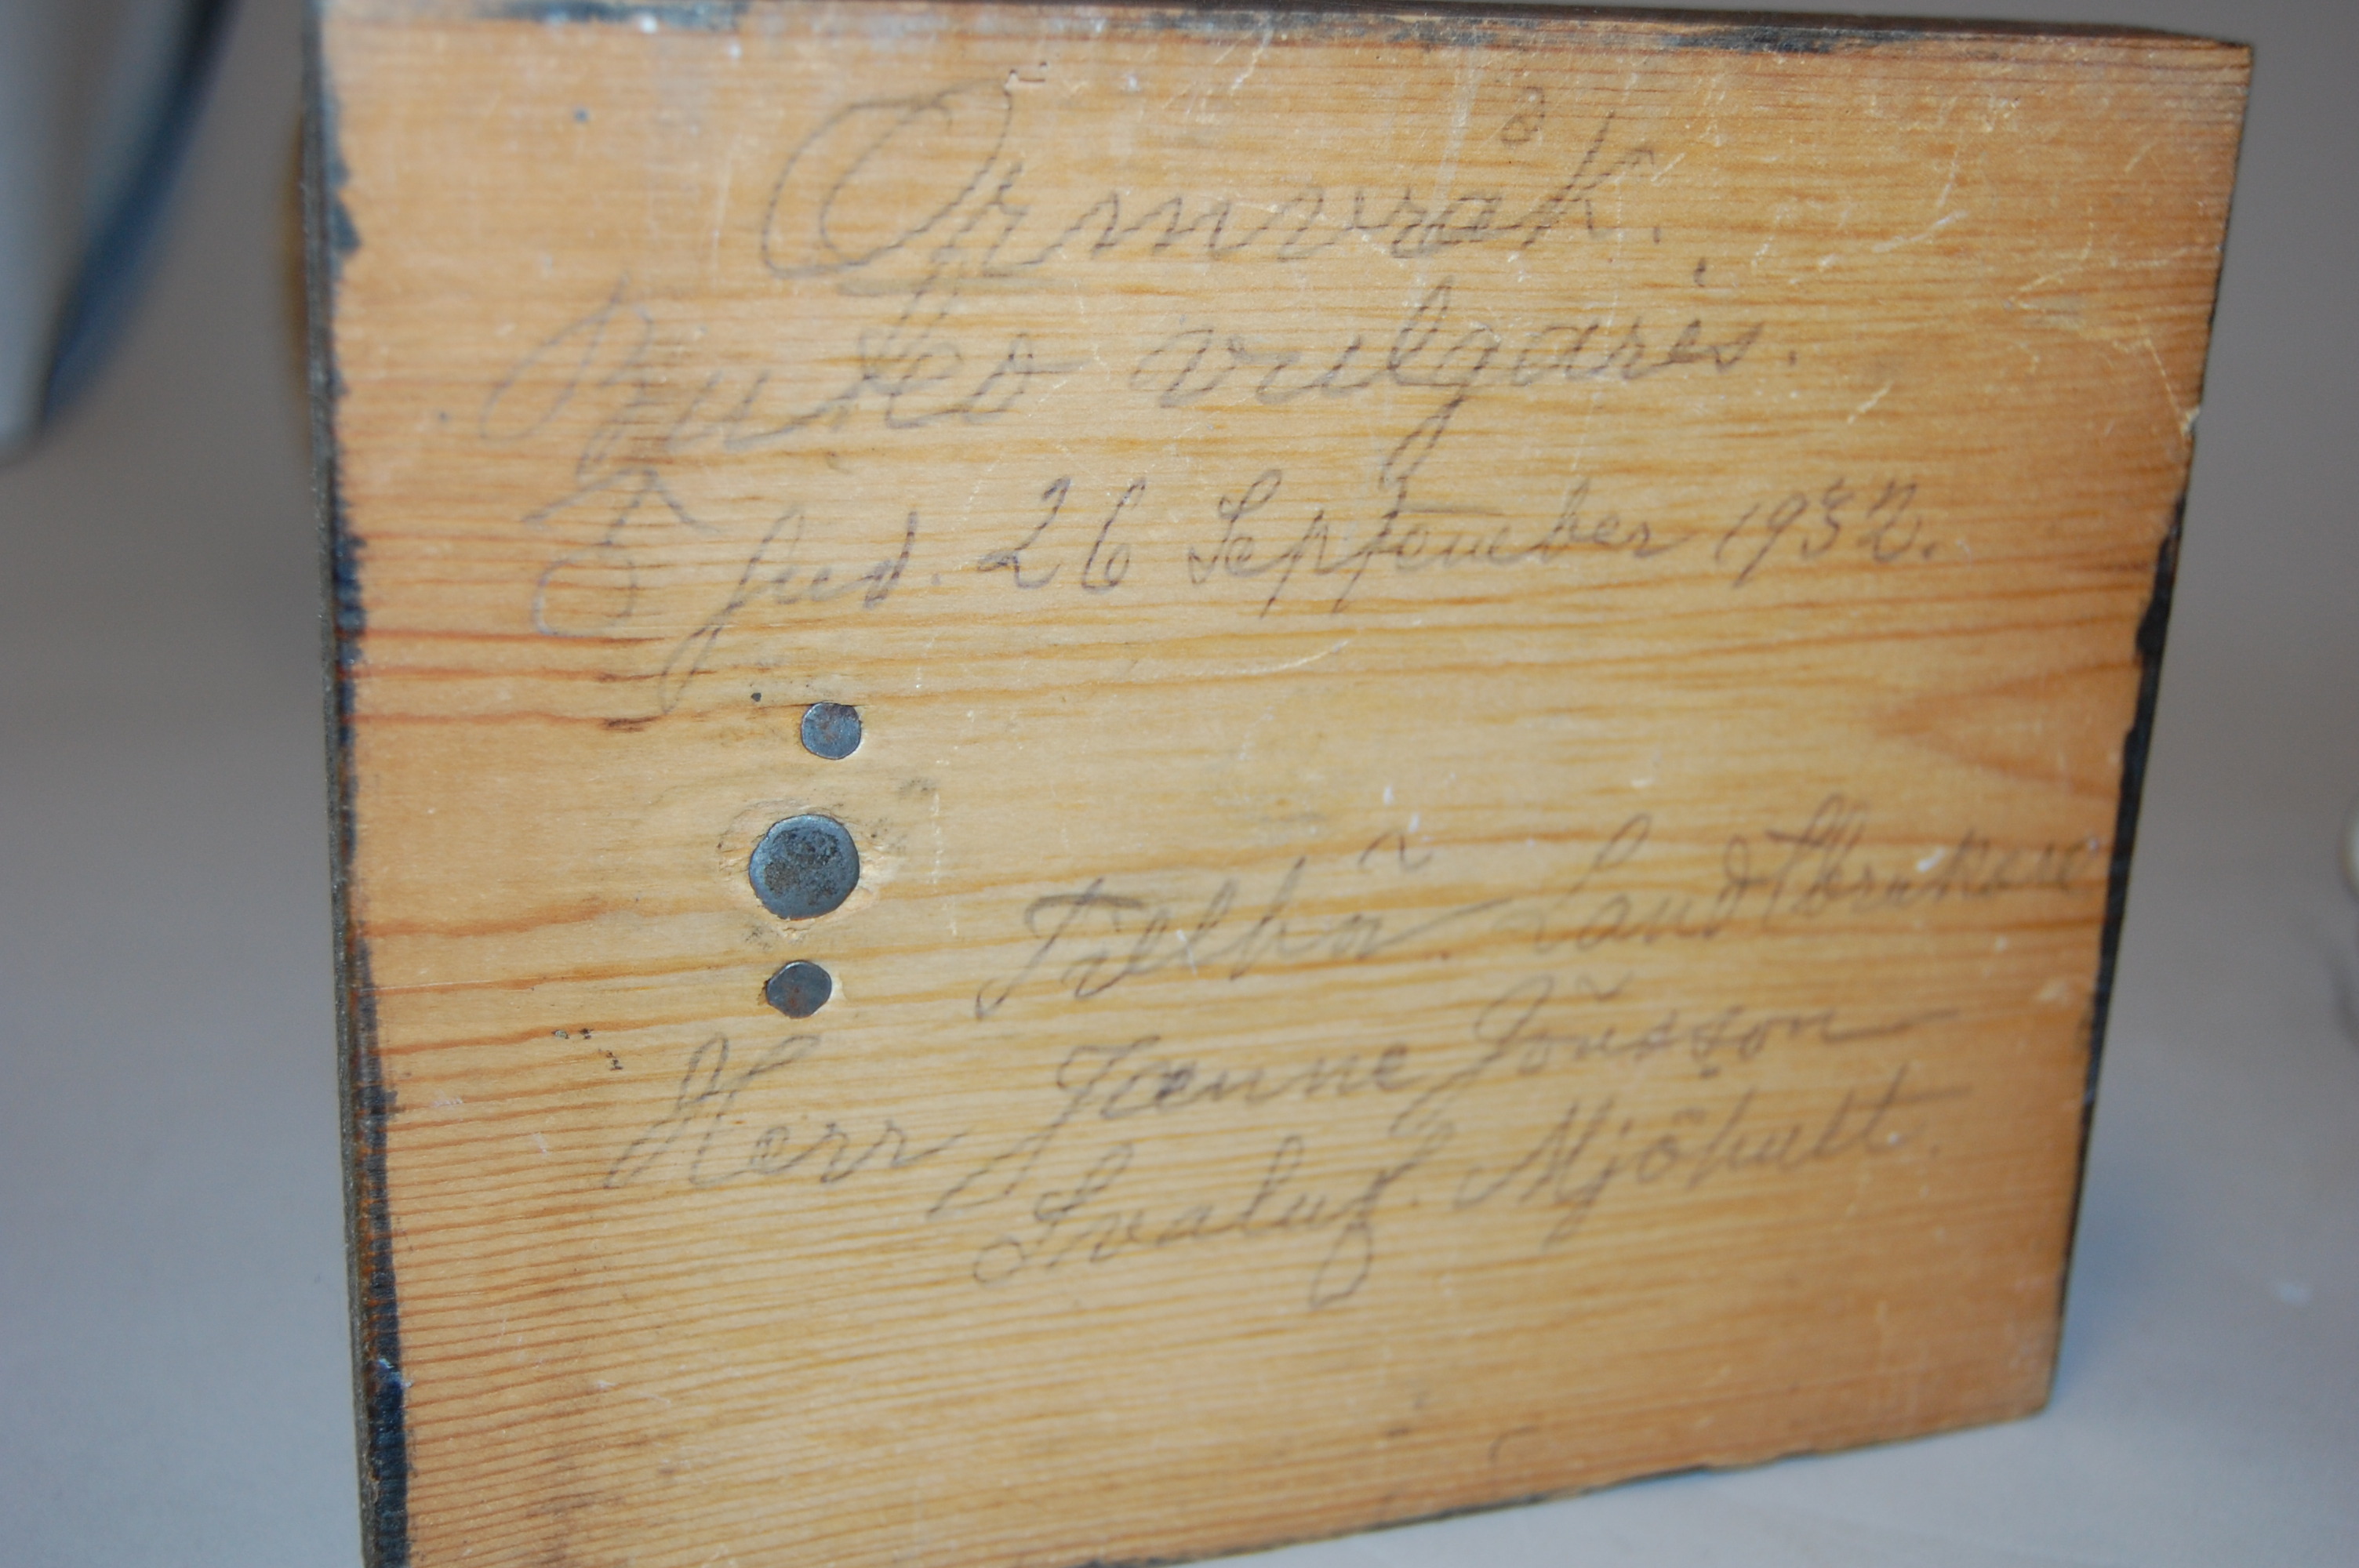 Ormvråk.
Buteo vulgaris.
♂ juv. 26 September 1932.
Tillhör Landtbrukare
Herr Janne Jönsson
Svaluf. Mjöhult.